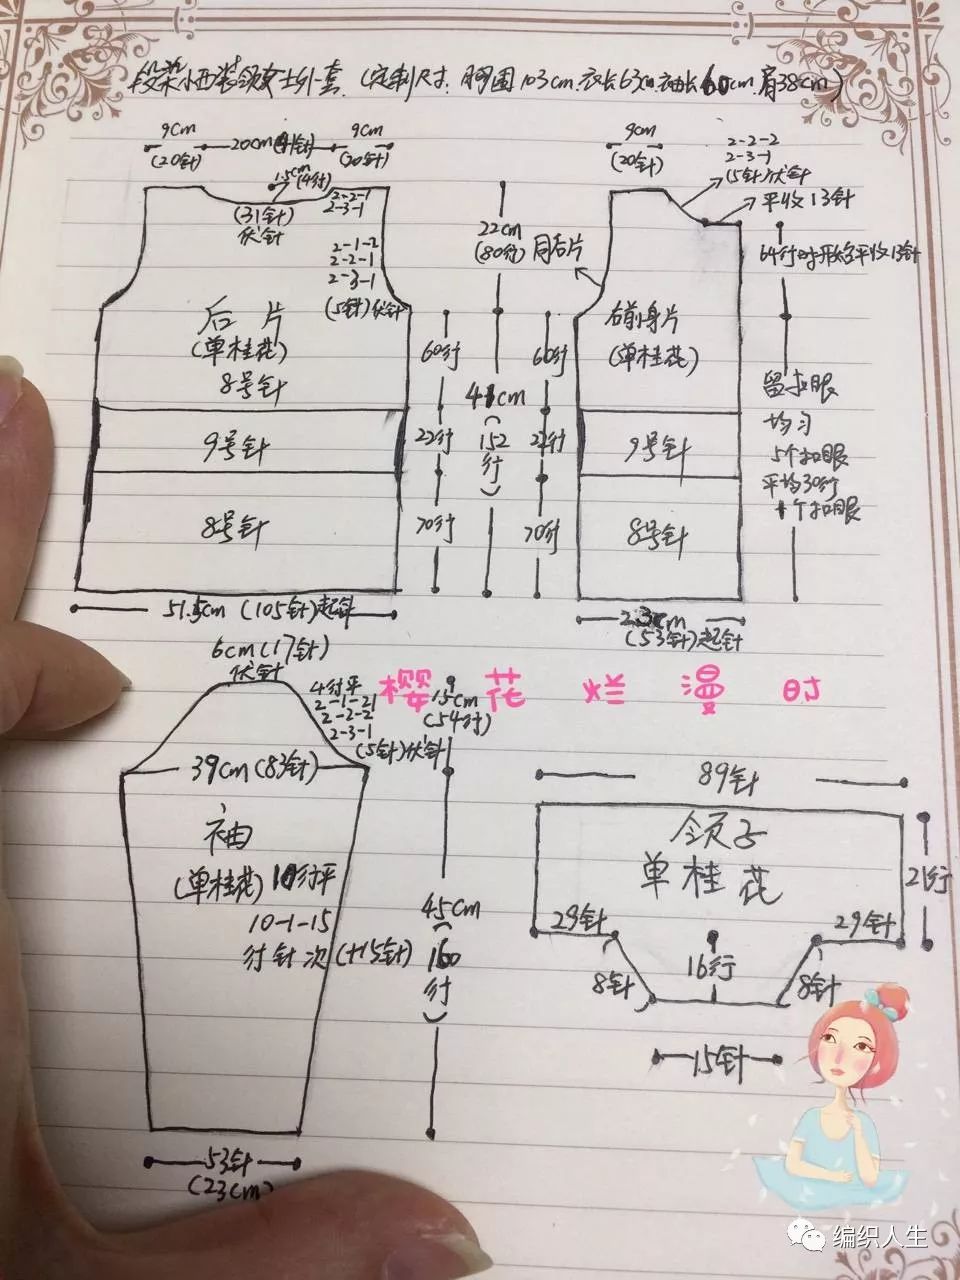 段染小西装领女士外套.(定制尺寸.胸围103cm.衣长63cm.袖长60cm.肩38cm)
9cm
(20针)
20cm(41针)
9cm
(20针)
1.5cm
(4行)
(31针)
伏针
2-2-1
2-3-1
2-1-2
2-2-1
2-3-1
(5针)伏针
后片
(单桂花)
8号针
9号针
8号针
51.5cm(105针)起针
22cm
(80行)
60行
22行
70行
41cm
(152行)
60行
22行
70行
同后片
9cm
(20针)
2-2-2
2-3-1
(5针)伏针
平收13针
64行时开始平收13针
右前身片
(单桂花)
9号针
8号针
23cm
(53针)起针
留扣眼
均匀
5个扣眼
平均30行
1个扣眼
樱花烂漫时
6cm(17针)
伏针
4行平
2-1-21
2-2-2
2-3-1
(5针)伏针
15cm
(54行)
39cm(83针)
袖
(单桂花)
10行平
10-1-15
行针次(+15针)
45cm
(160行)
53针
(23cm)
89针
领子
单桂花
21行
29针
29针
8针
16行
8针
15针
编织人生